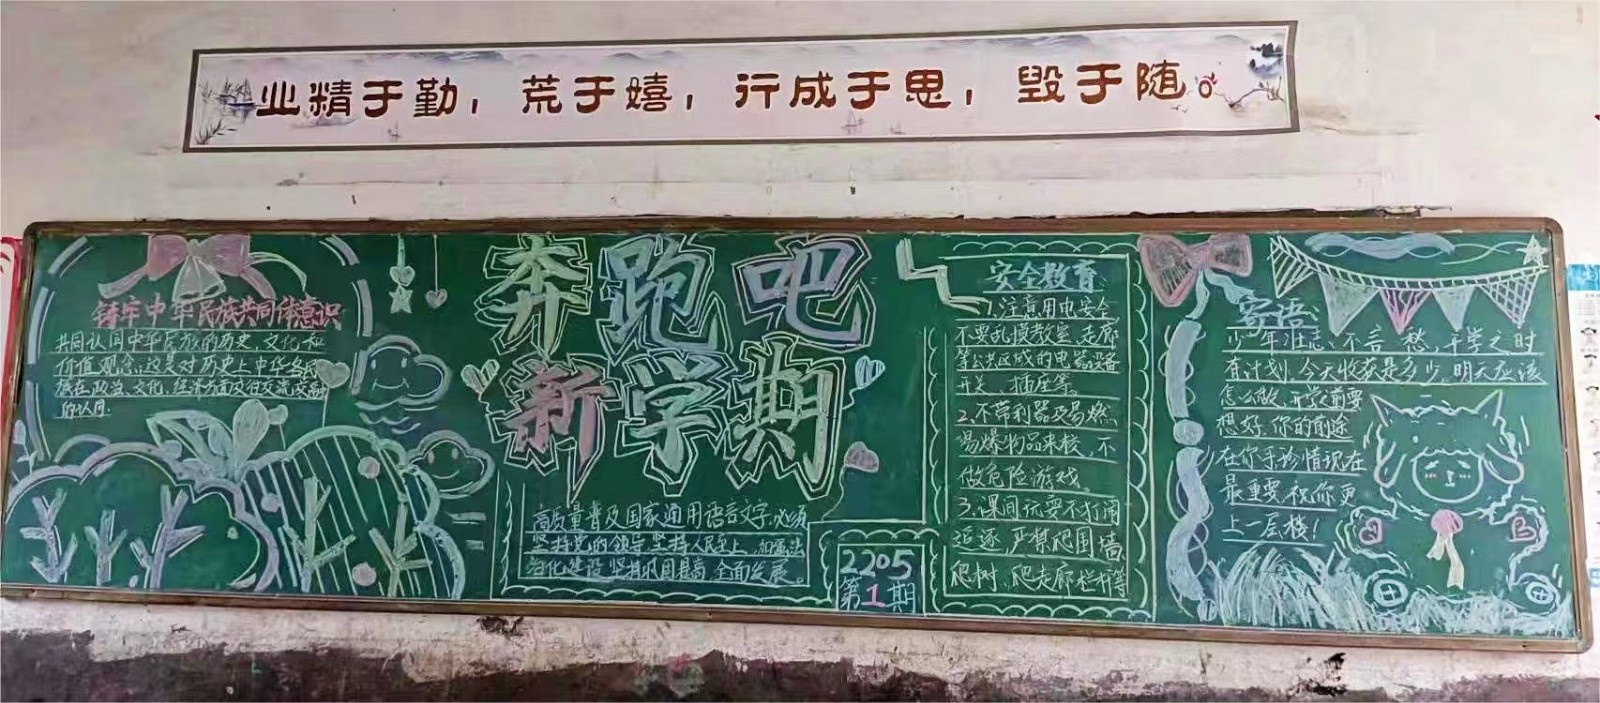 业精于勤，荒于嬉，行成于思，毁于随。
铸牢中华民族共同体意识
共同认同中华民族的历史、文化和
价值观念,这是对历史上中华各民
族在政治、文化、经济方面交往交流交融
的认同.
奔跑吧
新学期
高质量普及国家通用语言文字,必须
坚持党的领导,坚持人民至上,加强法
治化建设,坚持巩固提高,全面发展
2205
第1期
安全教育
1.注意用电安全
不要乱摸教室、走廊
等公共区域的电器设备
开关、插座等。
2.不带利器及易燃、
易爆物品来校,不
做危险游戏
3.课间玩耍不打闹
追逐,严禁爬围墙、
爬树、爬走廊栏杆等
寄语:
少年壮志不言愁,开学之时
有计划,今天收获是多少,明天应该
怎么做,开学前要
想好,你的前途
在你手,珍惜现在
最重要,祝你更
上一层楼!